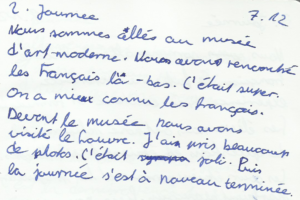 2. Journee 7.12
Nous sommes allés au musée
d'art-moderne. Nous avons rencontré
les Français là-bas. C'était super.
On a mieux connu les français.
Devant le musée nous avons
visité le Louvre. J'ais pris beaucoup
de photos. C'était joli. Puis
la journée s'est à nouveau terminée.